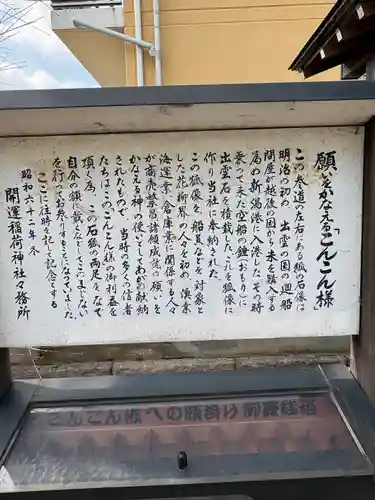 願いをかなえる「こんこん様」
この参道の左右にある狐の石像は
明治の初め、出雲の国の廻船
問屋が越後の国から米を購入する
為め新潟港に入港した。その時
乗って来た空船の錘(おもり)に
出雲石を積載したこれを狐像に
作り当社に奉納された。
この狐像を船員などを対象と
した花柳界の人々を初め、漁業
海運業、倉庫業に関係する人々
が商売繁昌諸願成就の願いを
かなえる神の使いとしてあがめ献納
されたもので、当時の多くの信者
たちはこのこんこん様の御利益を
頂く為、この石狐の両足をなで
自分の額に戴くなどしてこまでない
を行ってお参りすることになっていました
ここに往時を記して記念とする
昭和六十二年冬
開運稲荷神社々務所
こんこん様への願掛け御賽銭箱